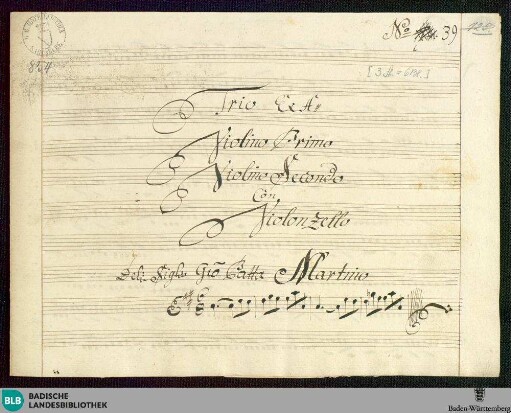 No. 39
854
[3 St. = 6 Bl.]
Trio Ex A
Violino Primo
Violino Secondo
Con
Violonzello
Del Sigre Gio Batta Martino
BLB BADISCHE
LANDESBIBLIOTHEK
Baden-Württemberg